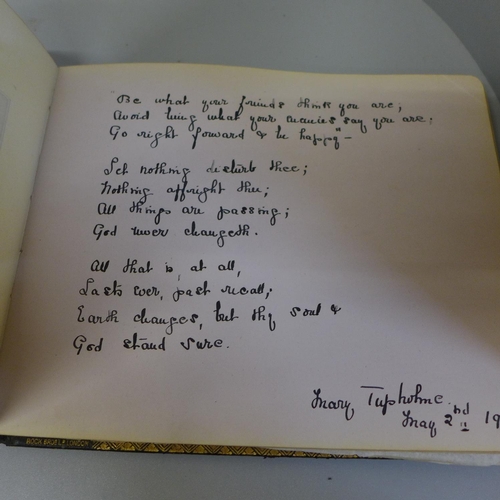 Be what your friends think you are;
Avoid being what your enemies say you are;
Go right forward & be happy" -
Let nothing disturb thee;
Nothing affright thee;
All things are passing;
God never changeth.
All that is, at all,
Lasts ever, past recall;
Earth changes, but thy soul &
God stand sure.
Mary Tupholme.
May 2nd 19